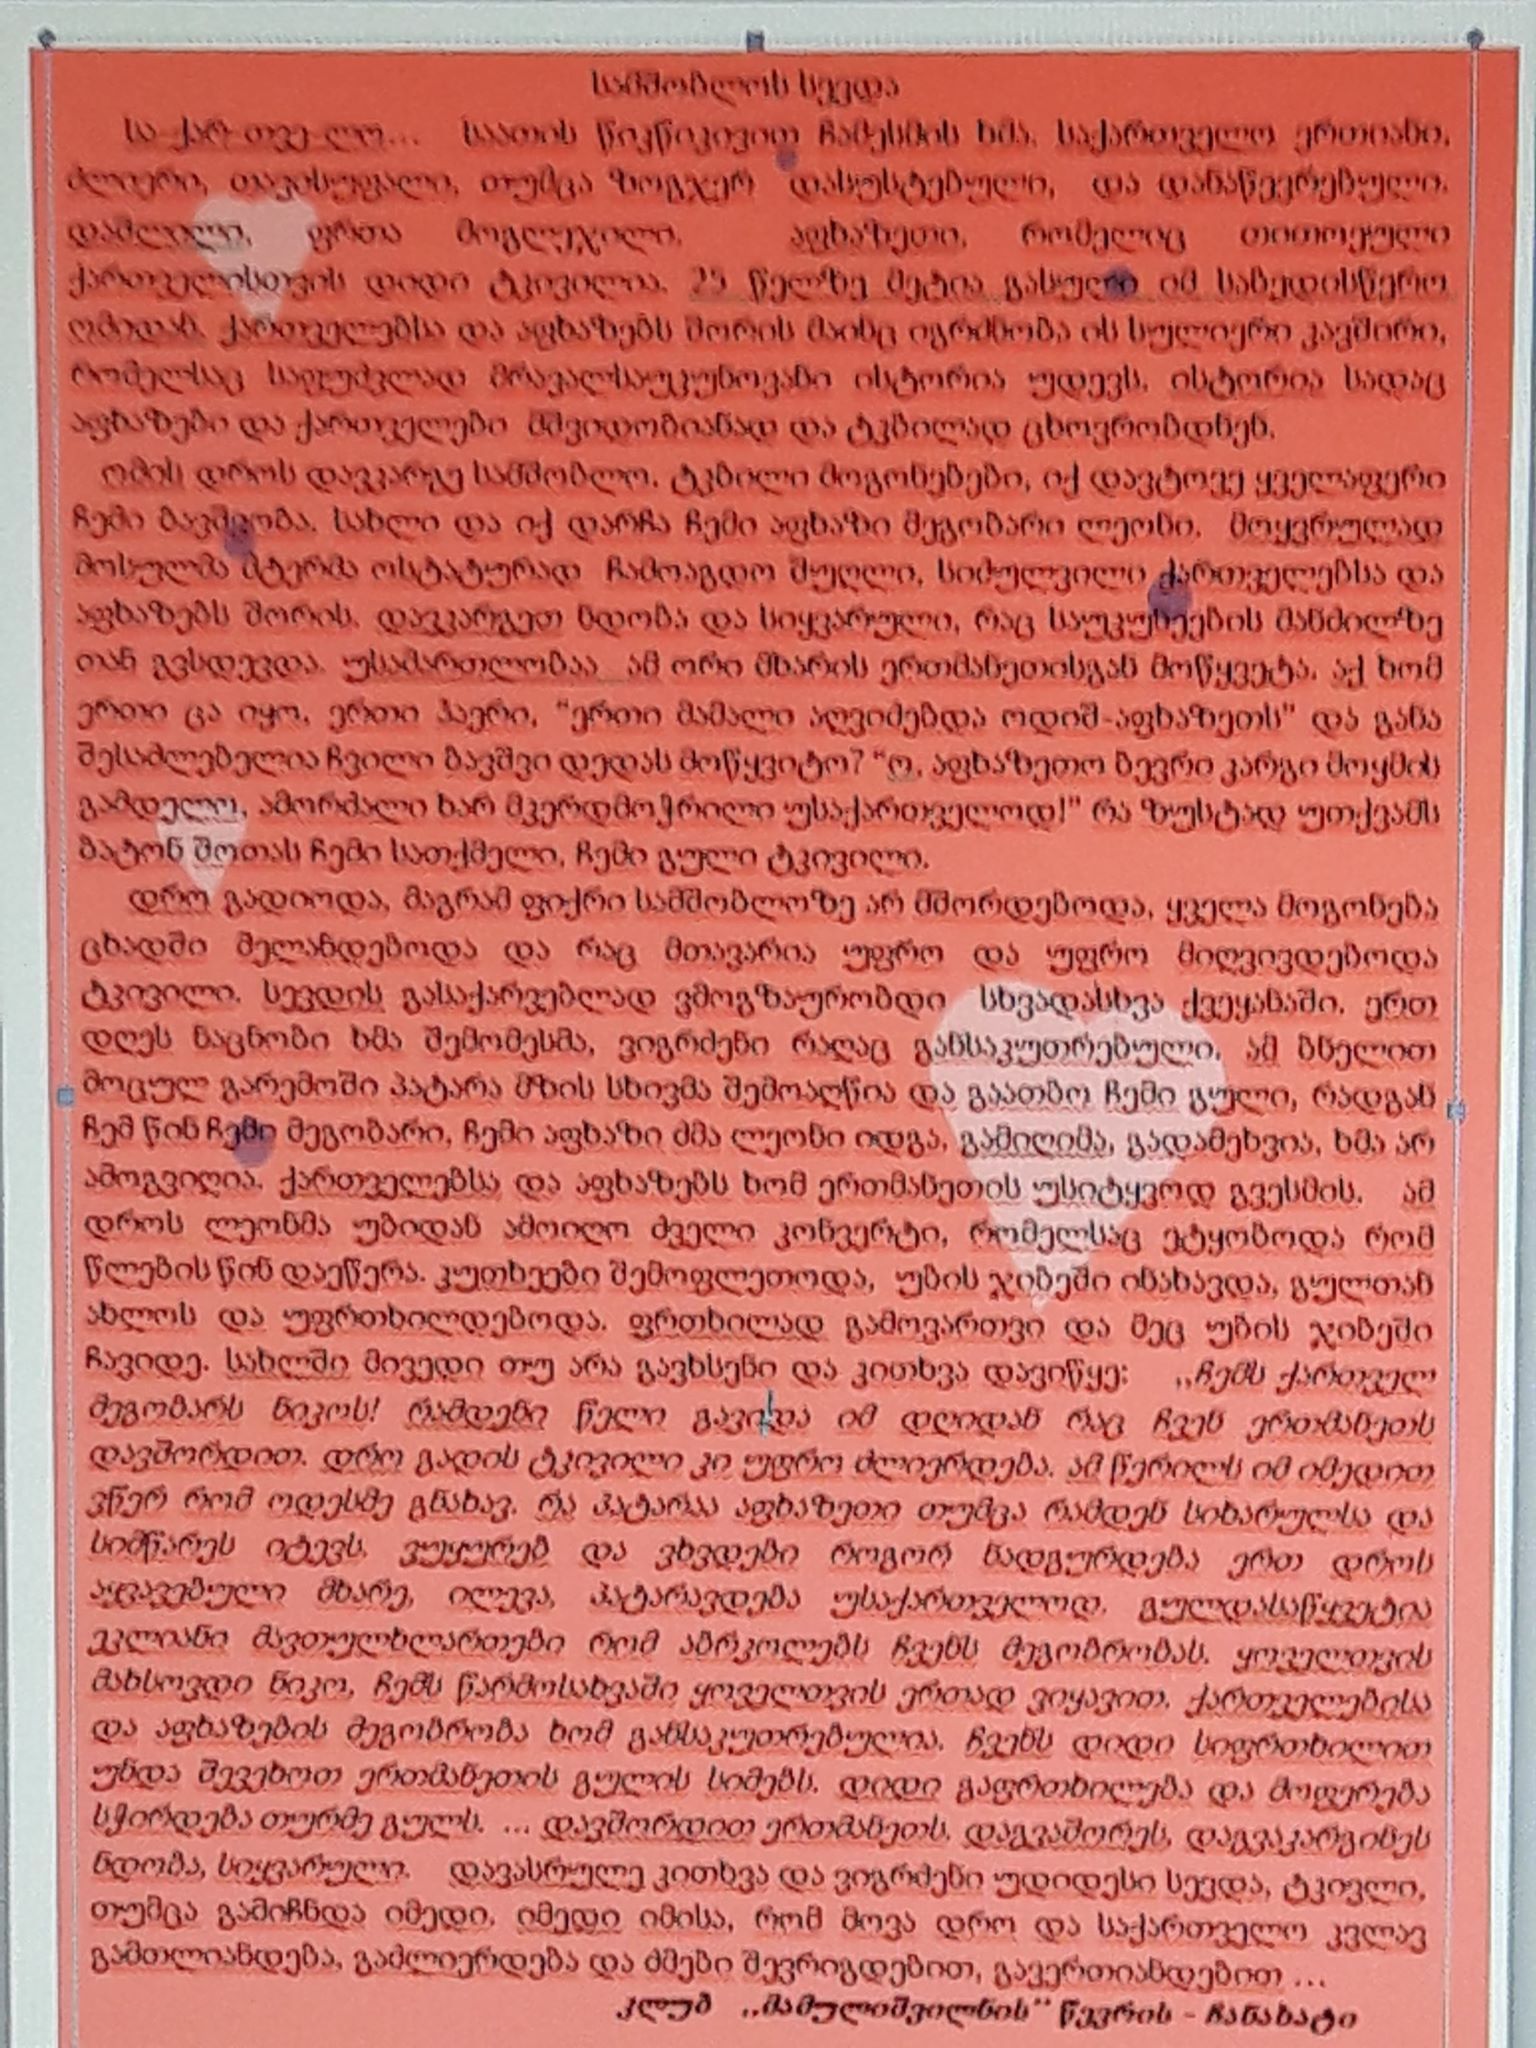 სამშობლოს სევდა
სა-ქარ-თვე-ლო... საათის წიკწიკივით ჩამესმის ხმა. საქართველო ერთიანი,
ძლიერი, თავისუფალი, თუმცა ზოგჯერ დასუსტებული, და დანაწევრებული.
დაშლილი, ფრთა მოგლეჯილი. აფხაზეთი, რომელიც თითოეული
ქართველისთვის დიდი ტკივილია. 25 წელზე მეტია გასული იმ საბედისწერო
ომიდან. ქართველებსა და აფხაზებს შორის მაინც იგრძნობა ის სულიერი კავშირი,
რომელსაც საფუძვლად მრავალსაუკუნოვანი ისტორია უდევს. ისტორია სადაც
აფხაზები და ქართველები მშვიდობიანად და ტკბილად ცხოვრობდნენ.
ომის დროს დავკარგე სამშობლო, ტკბილი მოგონებები, იქ დავტოვე ყველაფერი
ჩემი ბავშვობა, სახლი და იქ დარჩა ჩემი აფხაზი მეგობარი ლეონი. მოყვრულად
მოსულმა მტერმა ოსტატურად ჩამოაგდო შუღლი, სიძულვილი ქართველებსა და
აფხაზებს შორის. დავკარგეთ ნდობა და სიყვარული, რაც საუკუნეების მანძილზე
თან გვსდევდა. უსამართლობაა ამ ორი მხარის ერთმანეთისგან მოწყვეტა. აქ ხომ
ერთი ცა იყო, ერთი ჰაერი, "ერთი მამალი აღვიძებდა ოდიშ-აფხაზეთს" და განა
შესაძლებელია ჩვილი ბავშვი დედას მოწყვიტო? "ო, აფხაზეთო ბევრი კარგი მოყმის
გამდელო, ამორძალი ხარ მკერდმოჭრილი უსაქართველოდ!" რა ზუსტად უთქვამს
ბატონ შოთას ჩემი სათქმელი, ჩემი გული ტკივილი.
დრო გადიოდა, მაგრამ ფიქრი სამშობლოზე არ მშორდებოდა, ყველა მოგონება
ცხადში მელანდებოდა და რაც მთავარია უფრო და უფრო მიღვივდებოდა
ტკივილი. სევდის გასაქარვებლად ვმოგზაურობდი სხვადასხვა ქვეყანაში. ერთ
დღეს ნაცნობი ხმა შემომესმა, ვიგრძენი რაღაც განსაკუთრებული. ამ ბნელით
მოცულ გარემოში პატარა მზის სხივმა შემოაღწია და გაათბო ჩემი გული, რადგან
ჩემ წინ ჩემი მეგობარი, ჩემი აფხაზი ძმა ლეონი იდგა, გამიღიმა, გადამეხვია, ხმა არ
ამოგვიღია. ქართველებსა და აფხაზებს ხომ ერთმანეთის უსიტყვოდ გვესმის. ამ
დროს ლეონმა უბიდან ამოიღო ძველი კონვერტი, რომელსაც ეტყობოდა რომ
წლების წინ დაეწერა. კუთხეები შემოფლეთოდა, უბის ჯიბეში ინახავდა, გულთან
ახლოს და უფრთხილდებოდა. ფრთხილად გამოვართვი და მეც უბის ჯიბეში
ჩავიდე. სახლში მივედი თუ არა გავხსენი და კითხვა დავიწყე: ,,ჩემს ქართველ
მეგობარს ნიკოს! რამდენი წელი გავიდა იმ დღიდან რაც ჩვენ ერთმანეთს
დავშორდით. დრო გადის ტკივილი კი უფრო ძლიერდება. ამ წერილს იმ იმედით
ვწერ რომ ოდესმე გნახავ. რა პატარაა აფხაზეთი თუმცა რამდენ სიხარულსა და
სიმწარეს იტევს. ვუყურებ და ვხვდები როგორ ნადგურდება ერთ დროს
აყვავებული მხარე, ილევა, პატარავდება უსაქართველოდ. გულდასაწყვეტია
ეკლიანი მავთულხლართები რომ აბრკოლებს ჩვენს მეგობრობას. ყოველთვის
მახსოვდი ნიკო, ჩემს წარმოსახვაში ყოველთვის ერთად ვიყავით. ქართველებისა
და აფხაზების მეგობრობა ხომ განსაკუთრებულია. ჩვენს დიდი სიფრთხილით
უნდა შევეხოთ ერთმანეთის გულის სიმებს. დიდი გაფრთხილება და მოფერება
სჭირდება თურმე გულს. ... დავშორდით ერთმანეთს. დაგვაშორეს, დაგვაკარგინეს
ნდობა, სიყვარული. დავასრულე კითხვა და ვიგრძენი უდიდესი სევდა, ტკივლი,
თუმცა გამიჩნდა იმედი, იმედი იმისა, რომ მოვა დრო და საქართველო კვლავ
გამთლიანდება, გაძლიერდება და ძმები შევრიგდებით, გავერთიანდებით ...
კლუბ ,,მამულიშვილნის" წევრის - ჩანახატი